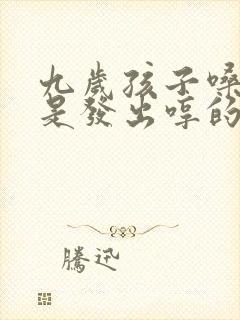 九歲孩子嗓
是發出啍的
騰迅